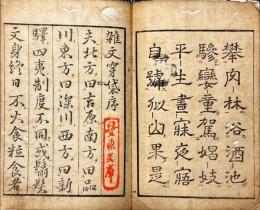 攀肉林浴酒池
騎孌童駕娼妓
平生晝寐夜寤
自號似山果是
雜文穿袋序
夫北方曰吉原南方曰品
川東方曰深川西方曰新
驛四夷制度不同或髮
文身終日不火食粒食者